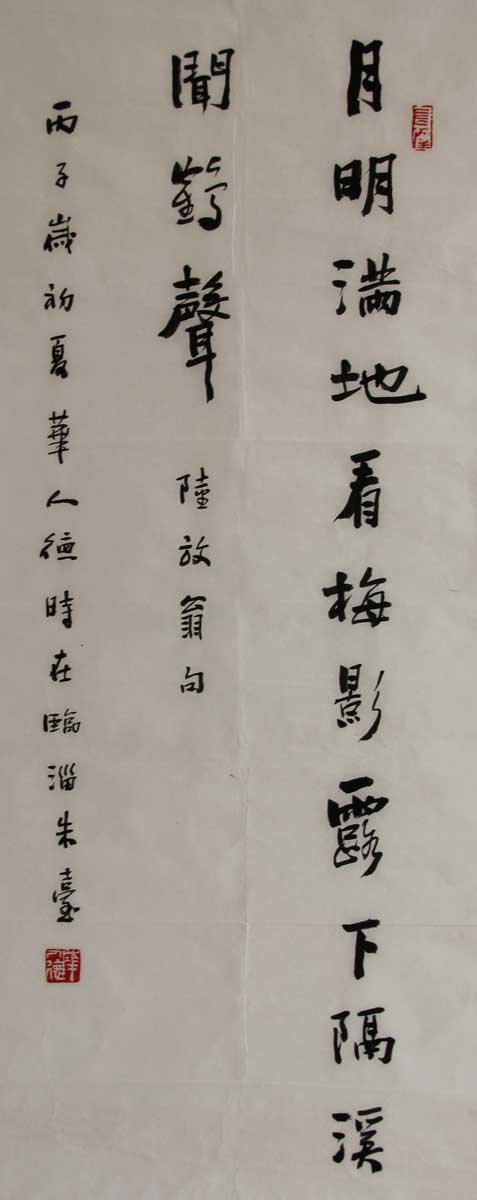 月明満地看梅影露下隔溪
聞鶴聲 陸放翁句
丙子歲初夏華人德時在臨淄朱臺
華人德